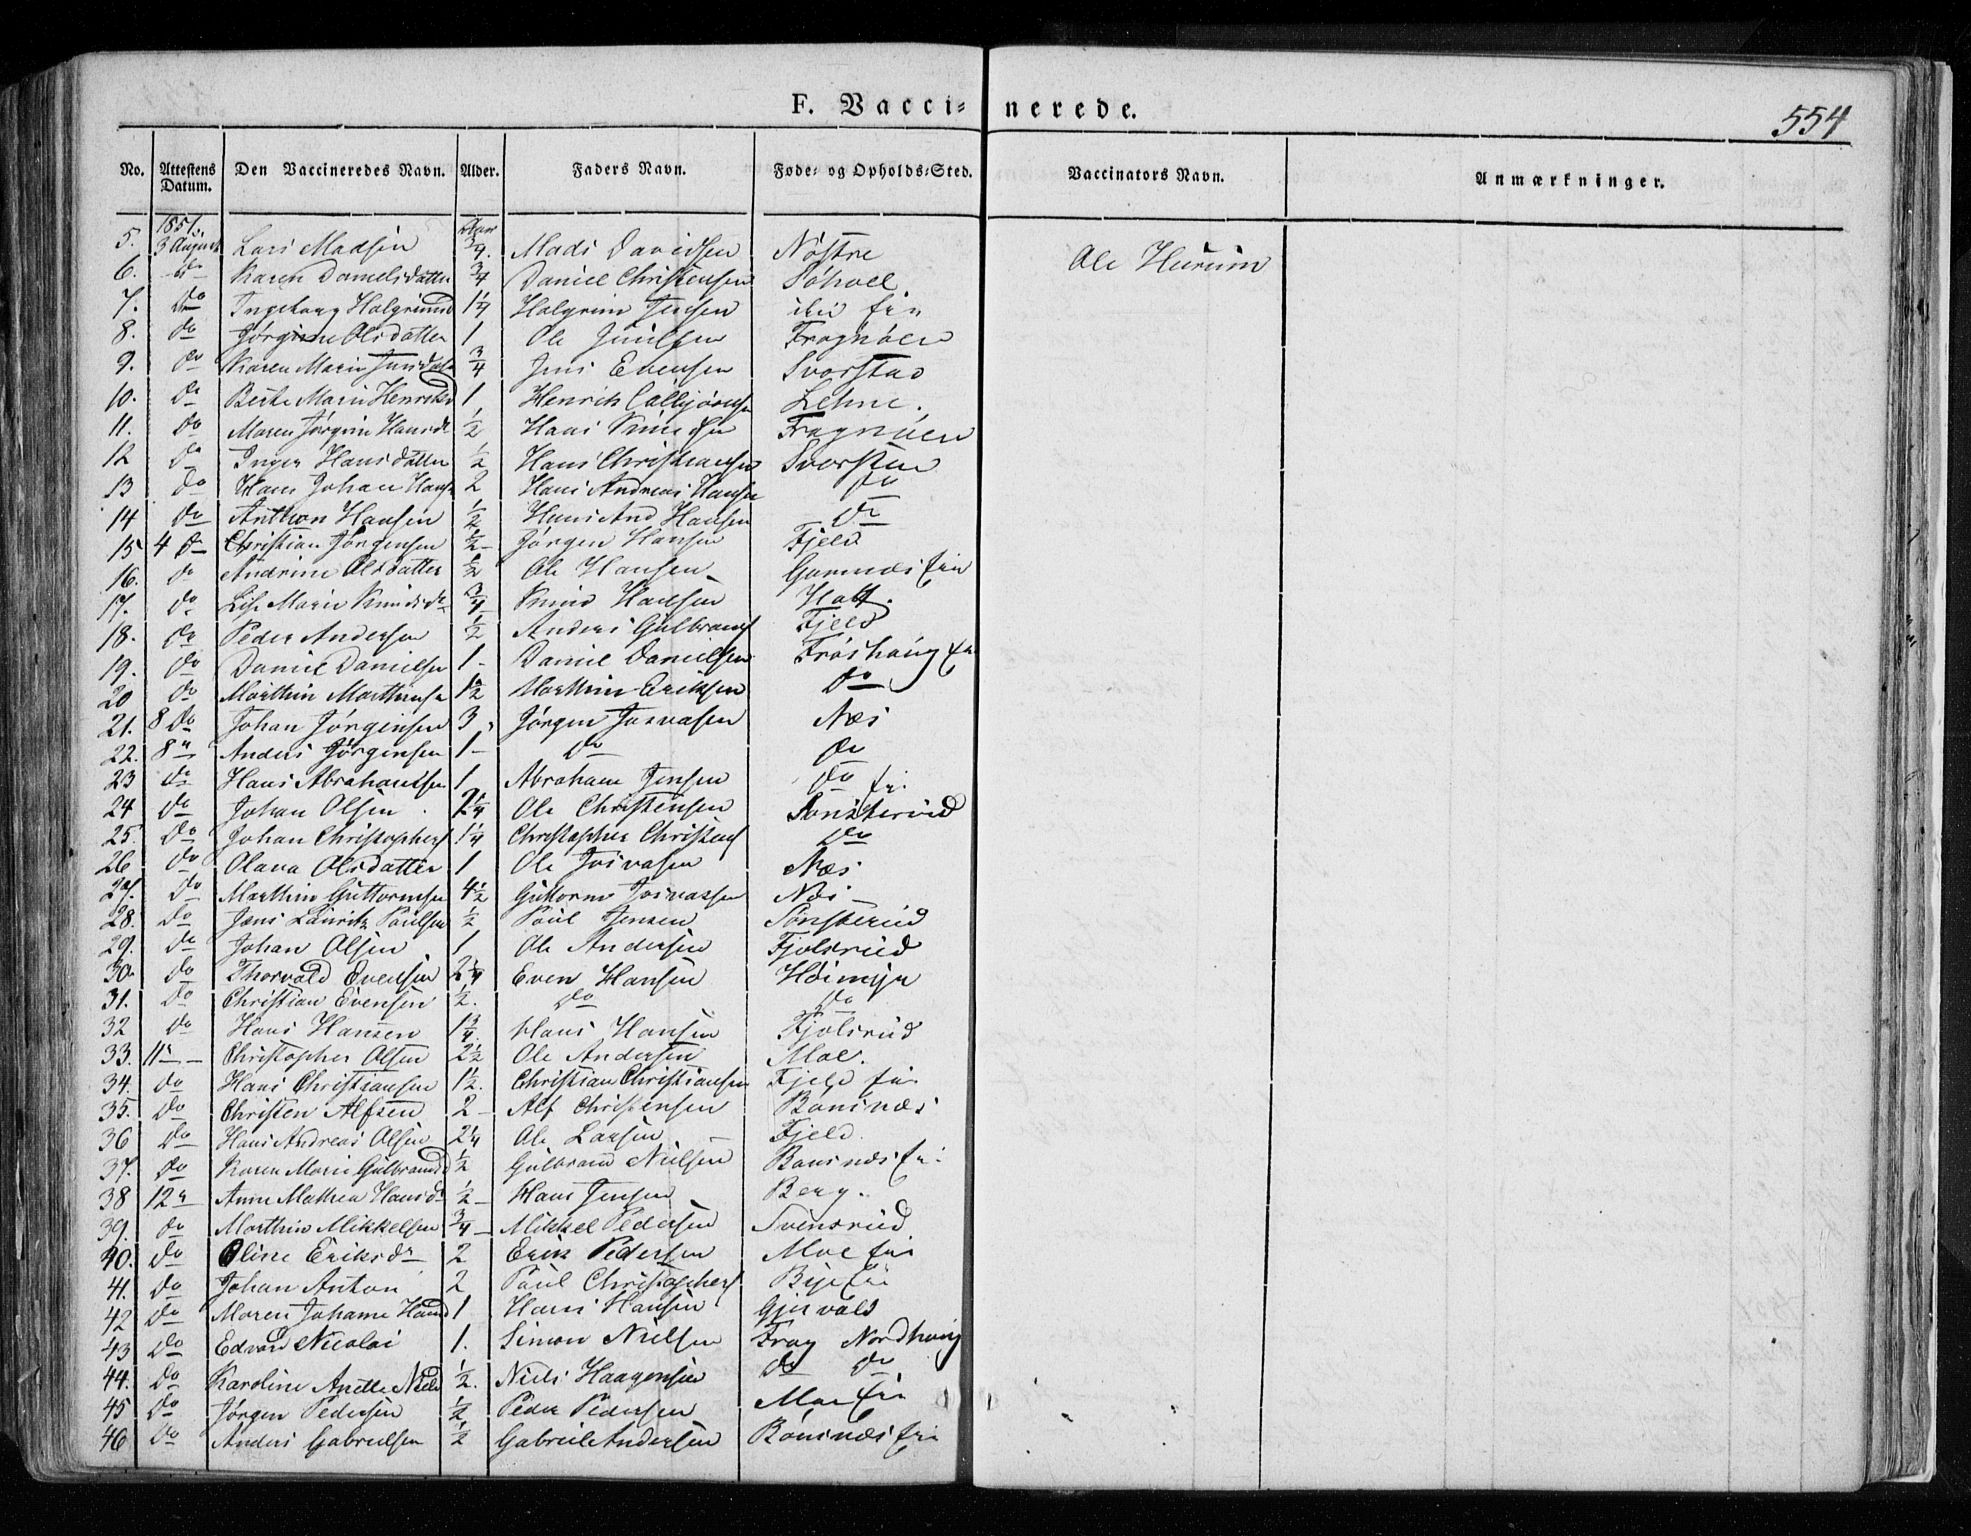 F. Vacci=nerede.
554
No. Attestens Datum. Den Vaccineredes Navn. Alder. Faders Navn. Føde- og Opholds-Sted. Vaccinators Navn. Anmærkninger.
1851. Aar
5. 3 August Lars Madsen 3/4. Mads Davidsen Nøstre Ole Hurum
6. do Karen Danielsdatter 3/4 Daniel Christensen
7. do Ingeborg Halgrimsd 1 1/4 Halgrim Jensen ibid
8. do Jørgine Olsdatter 1 Ole Juulsen Fragnøen
9. do Karen Marie Jensdatr 3/4 Jens Evensen Svarstad
10. do Berte Marie Henriksd 1 Henrik Callijørnsen Lehne.
11. do Maren Jørgine Hansdr 1/2 Hans Knudsen Fragnøen
12 do Inger Hansdatter 1/2 Hans Christiansen Svarstad
13 do Hans Johan Hansn 2 Hans Andreas Hansen do
14 do Anthon Hansen 1/2 Hans And Hansen do
15 4 do Christian Jørgensen 1/2 Jørgen Hansen Fjeld
16. do Andrine Olsdatter 1/2 Ole Hansen Gomnæs
17. do Lise Marie Knudsdr 3/4 Knud Hansen
18. do Peder Andersen 1/2 Anders Gulbrands Fjeld
19. do Daniel Danielsen 1 Daniel Danielsen Frøshaug
20 do Marthin Marthinsn 1 1/2 Marthin Eriksen do
21. 8 do Johan Jørgensen 3 Jørgen Josvasen Næs
22. 8 " Anders Jørgensen 1 do do
23 do Hans Abrahamsen 1 Abraham Jensen do
24 do Johan Olsen 2 1/4 Ole Christensen Tønsterud
25. do Johan Christophers 1 1/4 Christopher Christens do
26 do Olava Olsdatter 1 Ole Josvasen Næs
27. do Marthin Guttormsen 4 1/2 Guttorm Josvassen Næs
28. do Jens Lauritz Paulsen 1/2 Paul Jensen Tønsterud
29. do Johan Olsen 1 Ole Andersen Fjolsrud
30. do Thorvald Evensen 2 1/4 Even Hansen Høimyr
31. do Christian Evensen 1/2. do do
32 do Hans Hansen 1 3/4. Hans Hansen Fjolsrud
33. 11 Christopher Olsen 2 1/2 Ole Andersen Moe.
34. do Hans Christiansen 1 1/2. Christian Christiansen Fjeld
35. do Christen Alfsen 2 Alf Christensen Bønsnæs
36 do Hans Andreas Olsen 2 1/4 Ole Larsen Fjeld.
37. do Karen Marie Gulbrandsd 1/2 Gulbrand Nielsen Bønsnæs
38 12 " Anne Mathea Hansdr 1/2 Hans Jensen Berg.
39. do Marthin Mikkelsen 3/4 Mikkel Pedersen Svensrud
40. do Oline Eriksdr 2 Erik Pedersen Moe
41. do Johan Anton 2 Paul Christophers
42 do Maren Johanne Hansd 1 Hans Hansen Gjesvold
43 do Edvard Nicolai 1. Simon Nielsen Frog Nordhaug
44. do Karoline Anette Nielsd 1/2. Niels Haagensen do do
45 do Jørgen Pedersen 1/2 Peder Pedersen Moe
46 do Anders Gabrielsen 1/2 Gabriel Andersen Bønsnæs